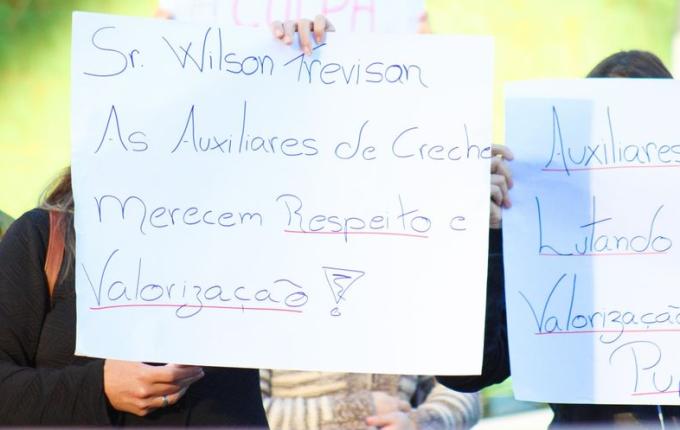 CULPA
Sr. Wilson Trevisan
As Auxiliares de Creche
Merecem Respeito e
Valorização !
Auxiliares
Lutando
Valorização